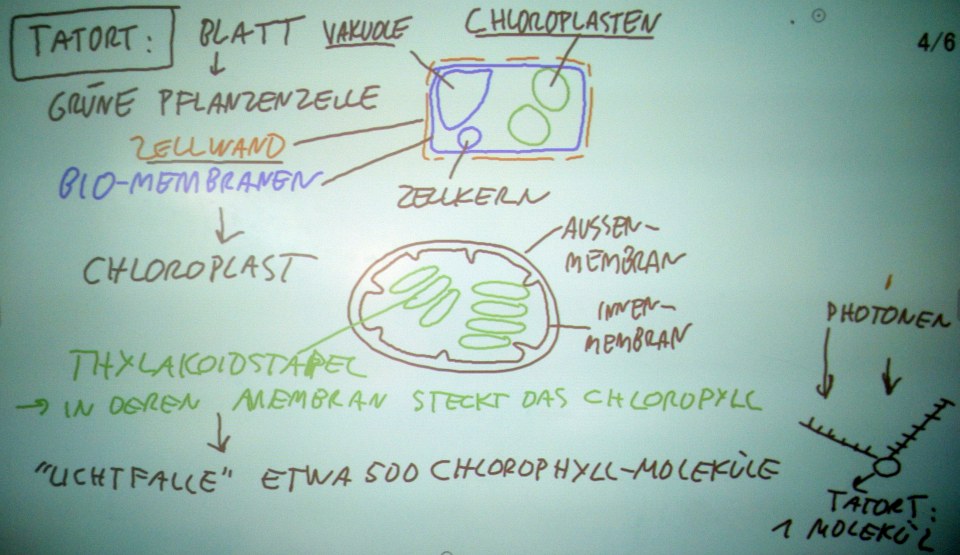 TATORT: BLATT VAKUOLE CHLOROPLASTEN
4/6
GRÜNE PFLANZENZELLE
ZELLWAND
BIO-MEMBRANEN
ZELLKERN
CHLOROPLAST
AUSSEN-
MEMBRAN
INNEN-
MEMBRAN
PHOTONEN
THYLAKOIDSTAPEL
→ IN DEREN MEMBRAN STECKT DAS CHLOROPYLL
"LICHTFALLE" ETWA 500 CHLOROPHYLL-MOLEKÜLE
TATORT:
1 MOLEKÜL